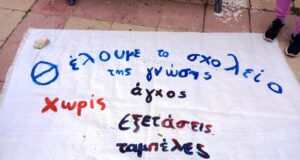 Θέλουμε το σχολείο
της γνώσης
άγχος
Χωρίς
εξετάσεις
ταμπέλες